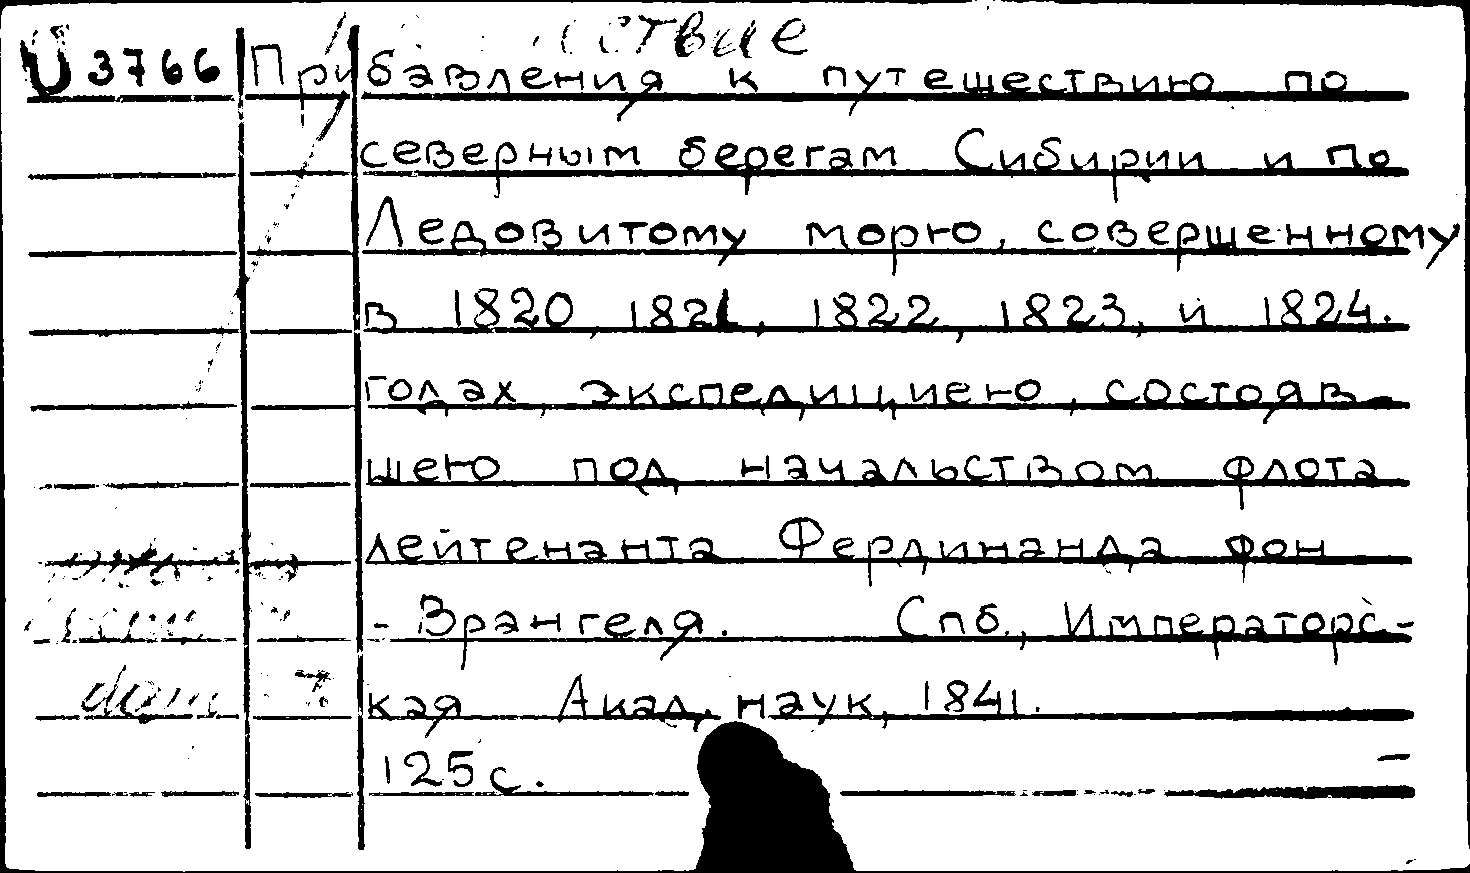 ствие
U 3766 Прибавления к путешествию по
северным берегам Сибирии и по
Ледовитому морю, совершенному
в 1820, 1821, 1822, 1823, и 1824.
годах, экспедициею, состояв-
шею под начальством флота
лейтенанта Фердинанда фон
- Врангеля. Спб., Императорс-
кая Акад. наук, 1841.
125 с.